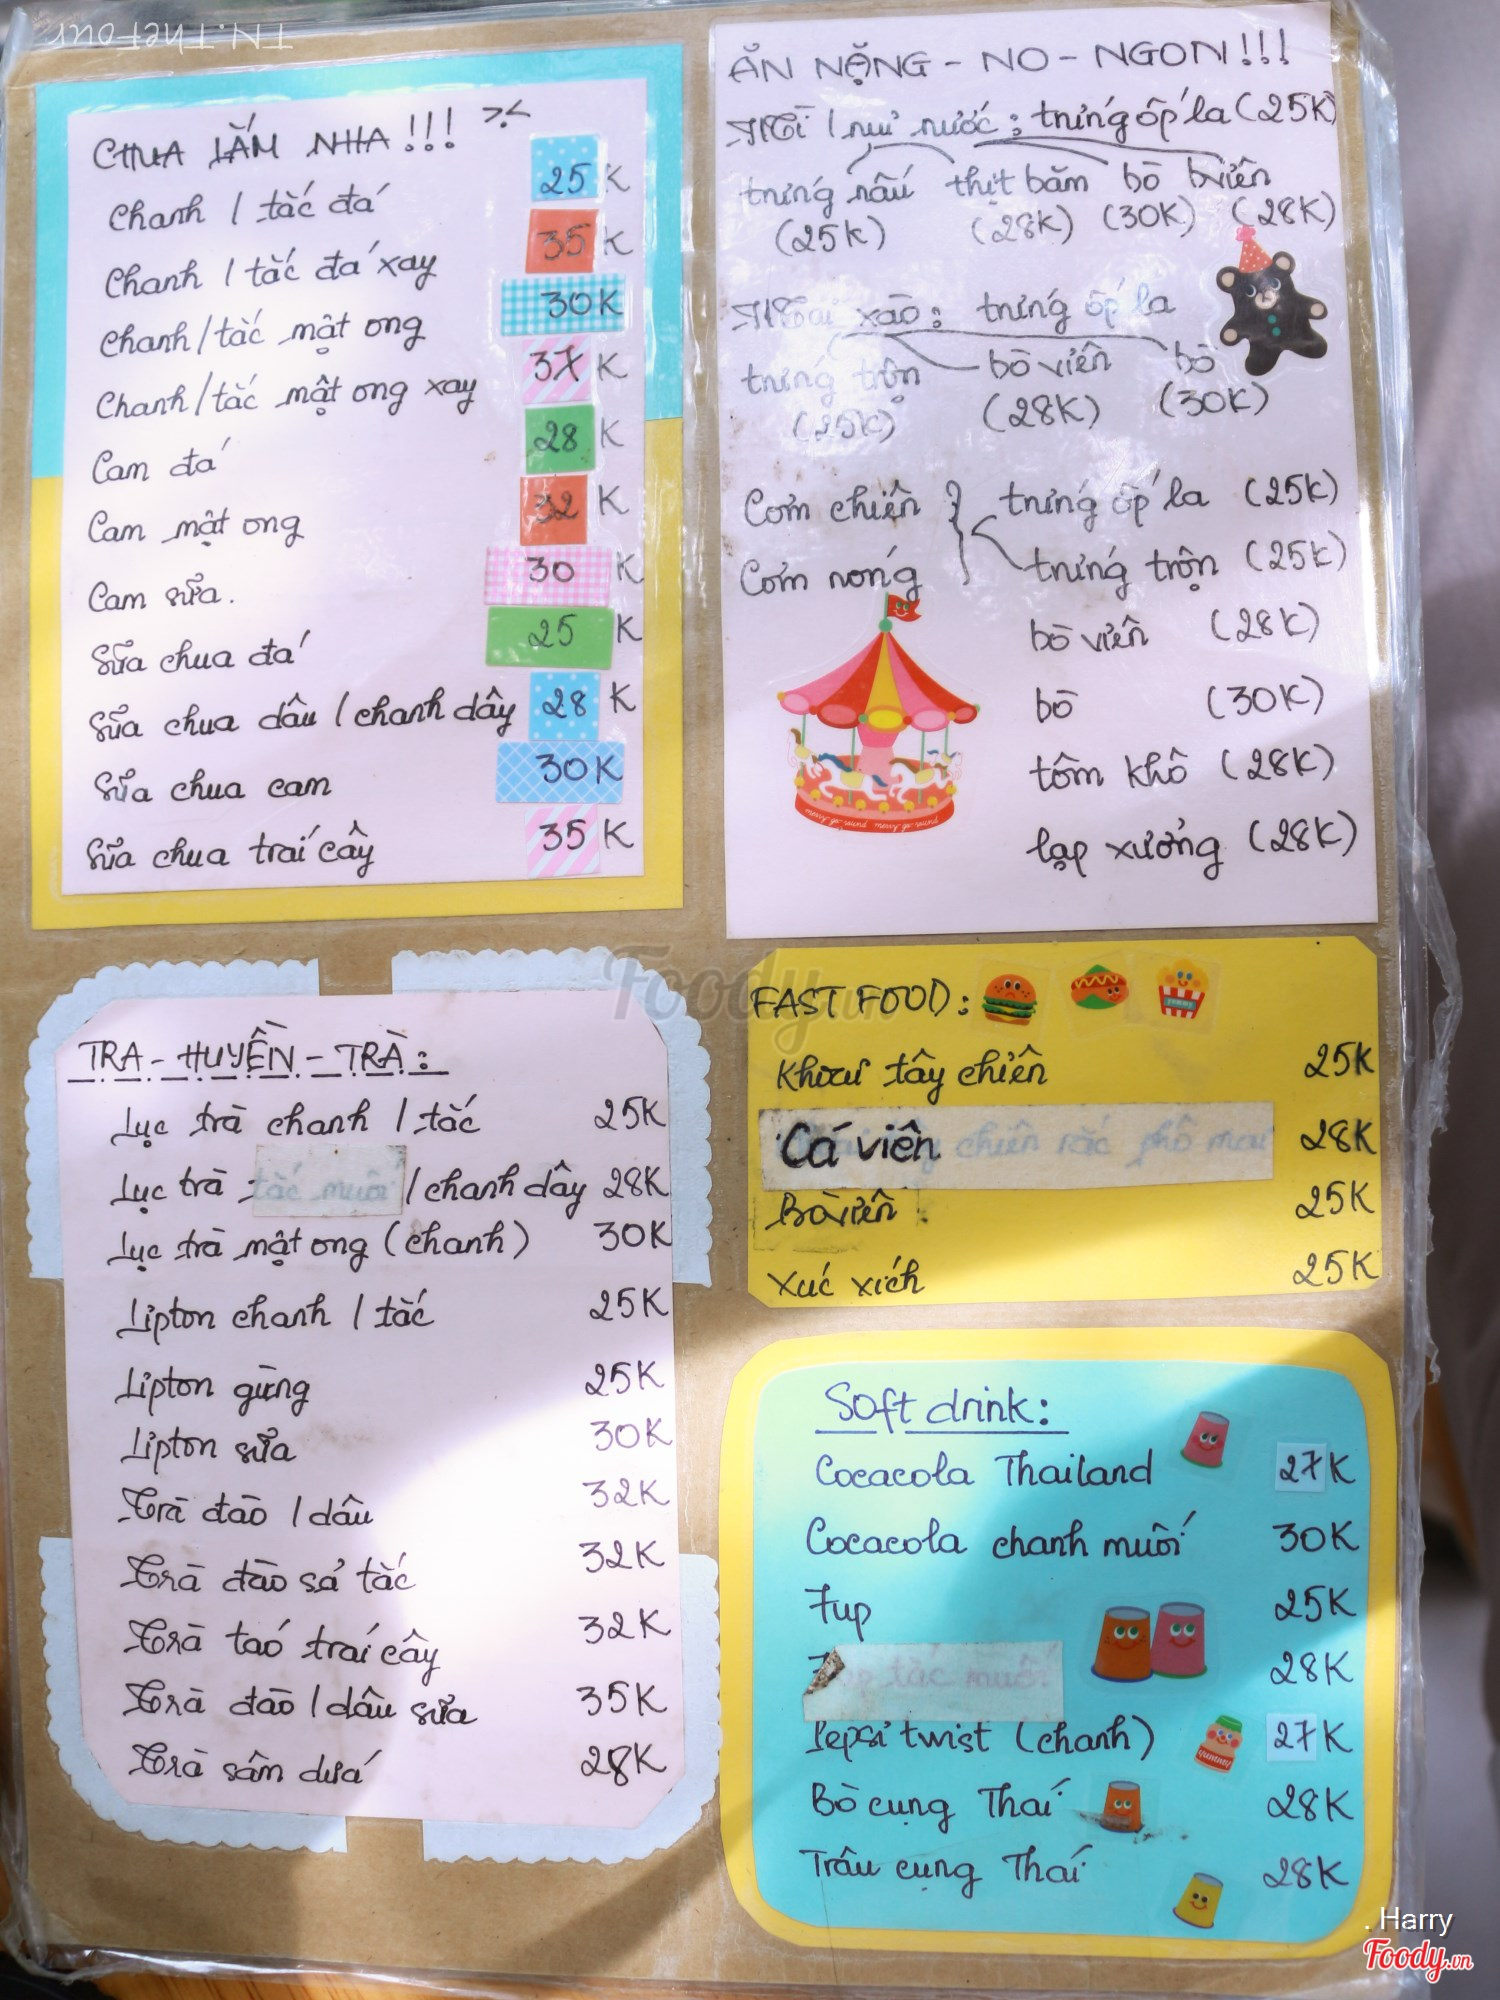 TN.THEFOUR
CHUA LẮM NHA!!! >.<
Chanh / tắc đá 25K
Chanh / tắc đá xay 35K
Chanh/tắc mật ong 30K
Chanh/tắc mật ong xay 37K
Cam đá 28K
Cam mật ong 32K
Cam sữa. 30K
Sữa chua đá 25K
Sữa chua dâu / chanh dây 28K
Sữa chua cam 30K
Sữa chua trái cây 35K
ĂN NẶNG - NO - NGON!!!
Mì / nui nước: trứng ốp la (25K)
trứng nấu thịt băm bò bò viên
(25K) (28K) (30K) (28K)
xào: trứng ốp la
trứng trộn bò viên bò
(25K) (28K) (30K)
Cơm chiên } trứng ốp la (25K)
Cơm nóng trứng trộn (25K)
bò viên (28K)
bò (30K)
tôm khô (28K)
lạp xưởng (28K)
TRA - HUYỀN - TRÀ:
Lục trà chanh / tắc 25K
Lục trà tắc muối / chanh dây 28K
Lục trà mật ong (chanh) 30K
Lipton chanh / tắc 25K
Lipton gừng 25K
Lipton sữa 30K
Trà đào / dâu 32K
Trà đào sả tắc 32K
Trà táo trái cây 32K
Trà đào / dâu sữa 35K
Trà sâm dứa 28K
FAST FOOD:
yummy
Khoai tây chiên 25K
Cá viên chiên lắc phô mai 28K
Bò viên 25K
Xúc xích 25K
Soft drink:
Cocacola Thailand 27K
Cocacola chanh muối 30K
7up 25K
tắc muối 28K
Pepsi twist (chanh) 27K
YUMMY
Bò cụng Thái 28K
Trâu cụng Thái 28K
Foody.vn
. Harry
Foody.vn